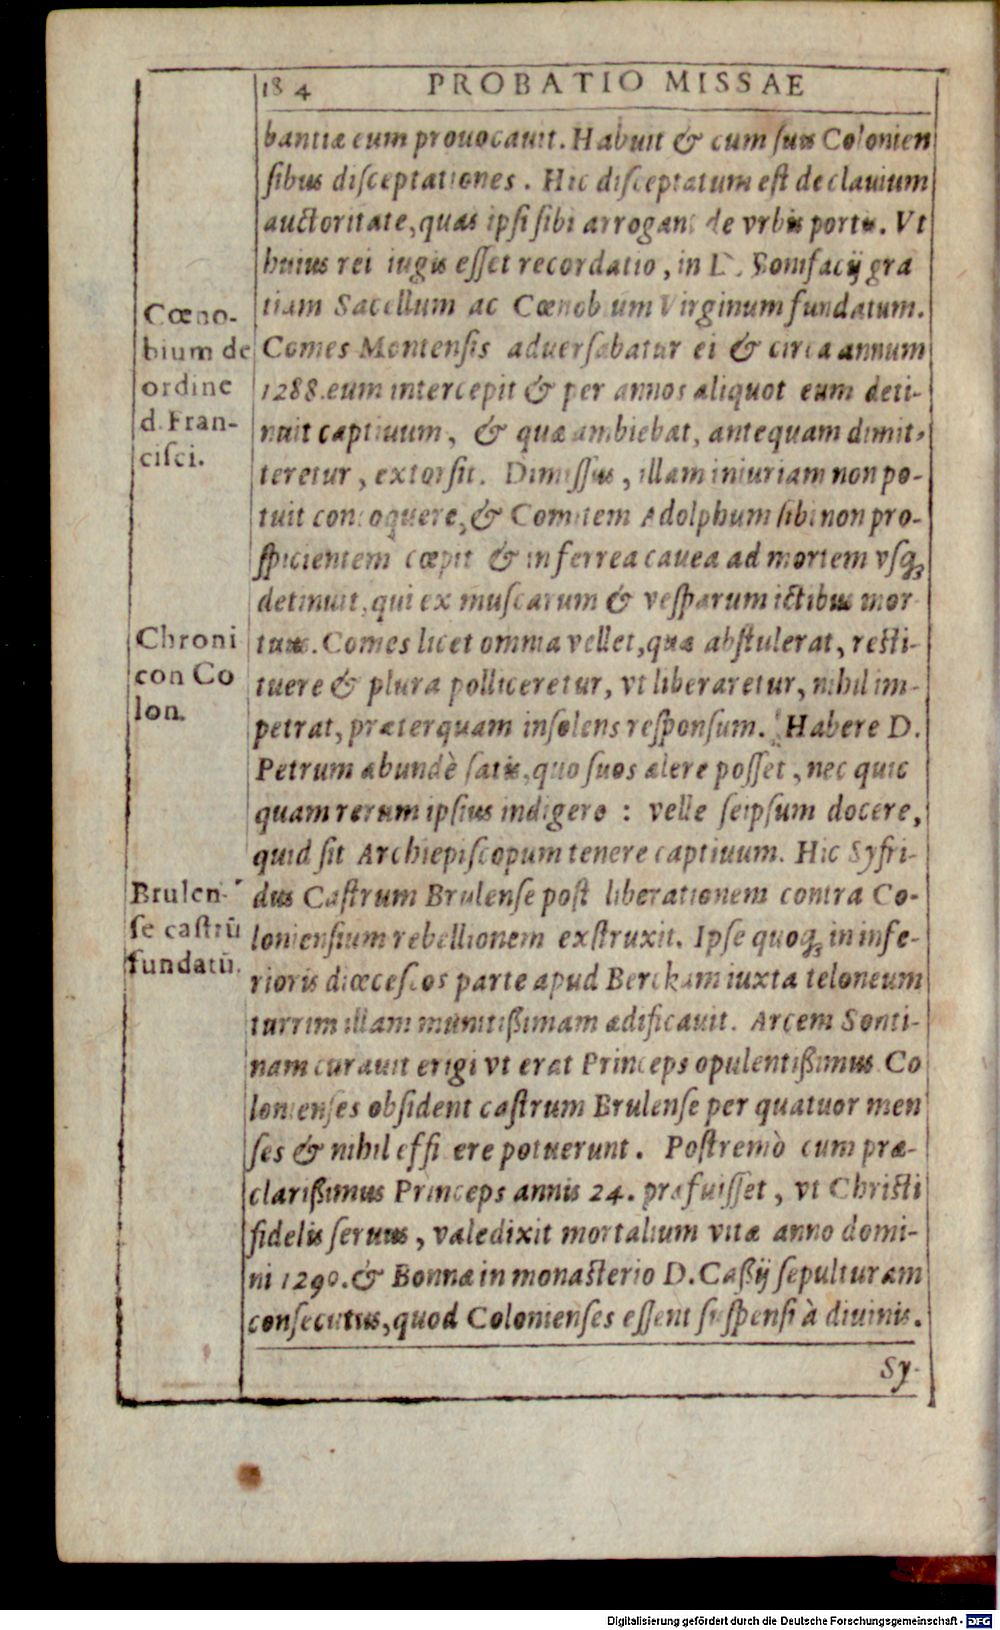 184 PROBATIO MISSAE
bantiæ eum prouocauit. Habuit & cum suis Colonien
sibus disceptationes. Hic disceptatum est de clauium
auctoritate, quas ipsi sibi arrogant de vrbis portis. Vt
huius rei iugis esset recordatio, in D. Bonifacij gra
tiam Sacellum ac Cœnobium Virginum fundatum.
Cœno-
bium de
ordine
d. Fran-
cisci.
Comes Montensis aduersabatur ei & circa annum
1288. eum intercepit & per annos aliquot eum deti-
nuit captiuum, & quæ ambiebat, antequam dimit-
teretur, extorsit. Dimissus, illam iniuriam non po-
tuit concoquere, & Comitem Adolphum sibi non pro-
spicientem cœpit & in ferrea cauea ad mortem vsq;
detinuit, qui ex muscarum & vesparum ictibus mor
tuus. Comes licet omnia vellet, quæ abstulerat, resti-
Chroni
con Co
lon.
tuere & plura polliceretur, vt liberaretur, nihil im-
petrat, præterquam insolens responsum. Habere D.
Petrum abundè satis, quo suos alere posset, nec quic
quam rerum ipsius indigere : velle seipsum docere,
quid sit Archiepiscopum tenere captiuum. Hic Syfri-
dus Castrum Brulense post liberationem contra Co-
Brulen-
se castrū
fundatū.
loniensium rebellionem exstruxit. Ipse quoq; in infe-
rioris diœcesios parte apud Berckam iuxta teloneum
turrim illam munitißimam ædificauit. Arcem Sonti-
nam curauit erigi vt erat Princeps opulentißimus. Co
lonienses obsident castrum Brulense per quatuor men
ses & nihil efficere potuerunt. Postremò cum præ-
clarißimus Princeps annis 24. præfuisset, vt Christi
fidelis seruus, valedixit mortalium vitæ anno domi-
ni 1290. & Bonnæ in monasterio D. Caßij sepulturam
consecutus, quod Colonienses essent suspensi à diuinis.
Sy-
Digitalisierung gefördert durch die Deutsche Forschungsgemeinschaft - DFG